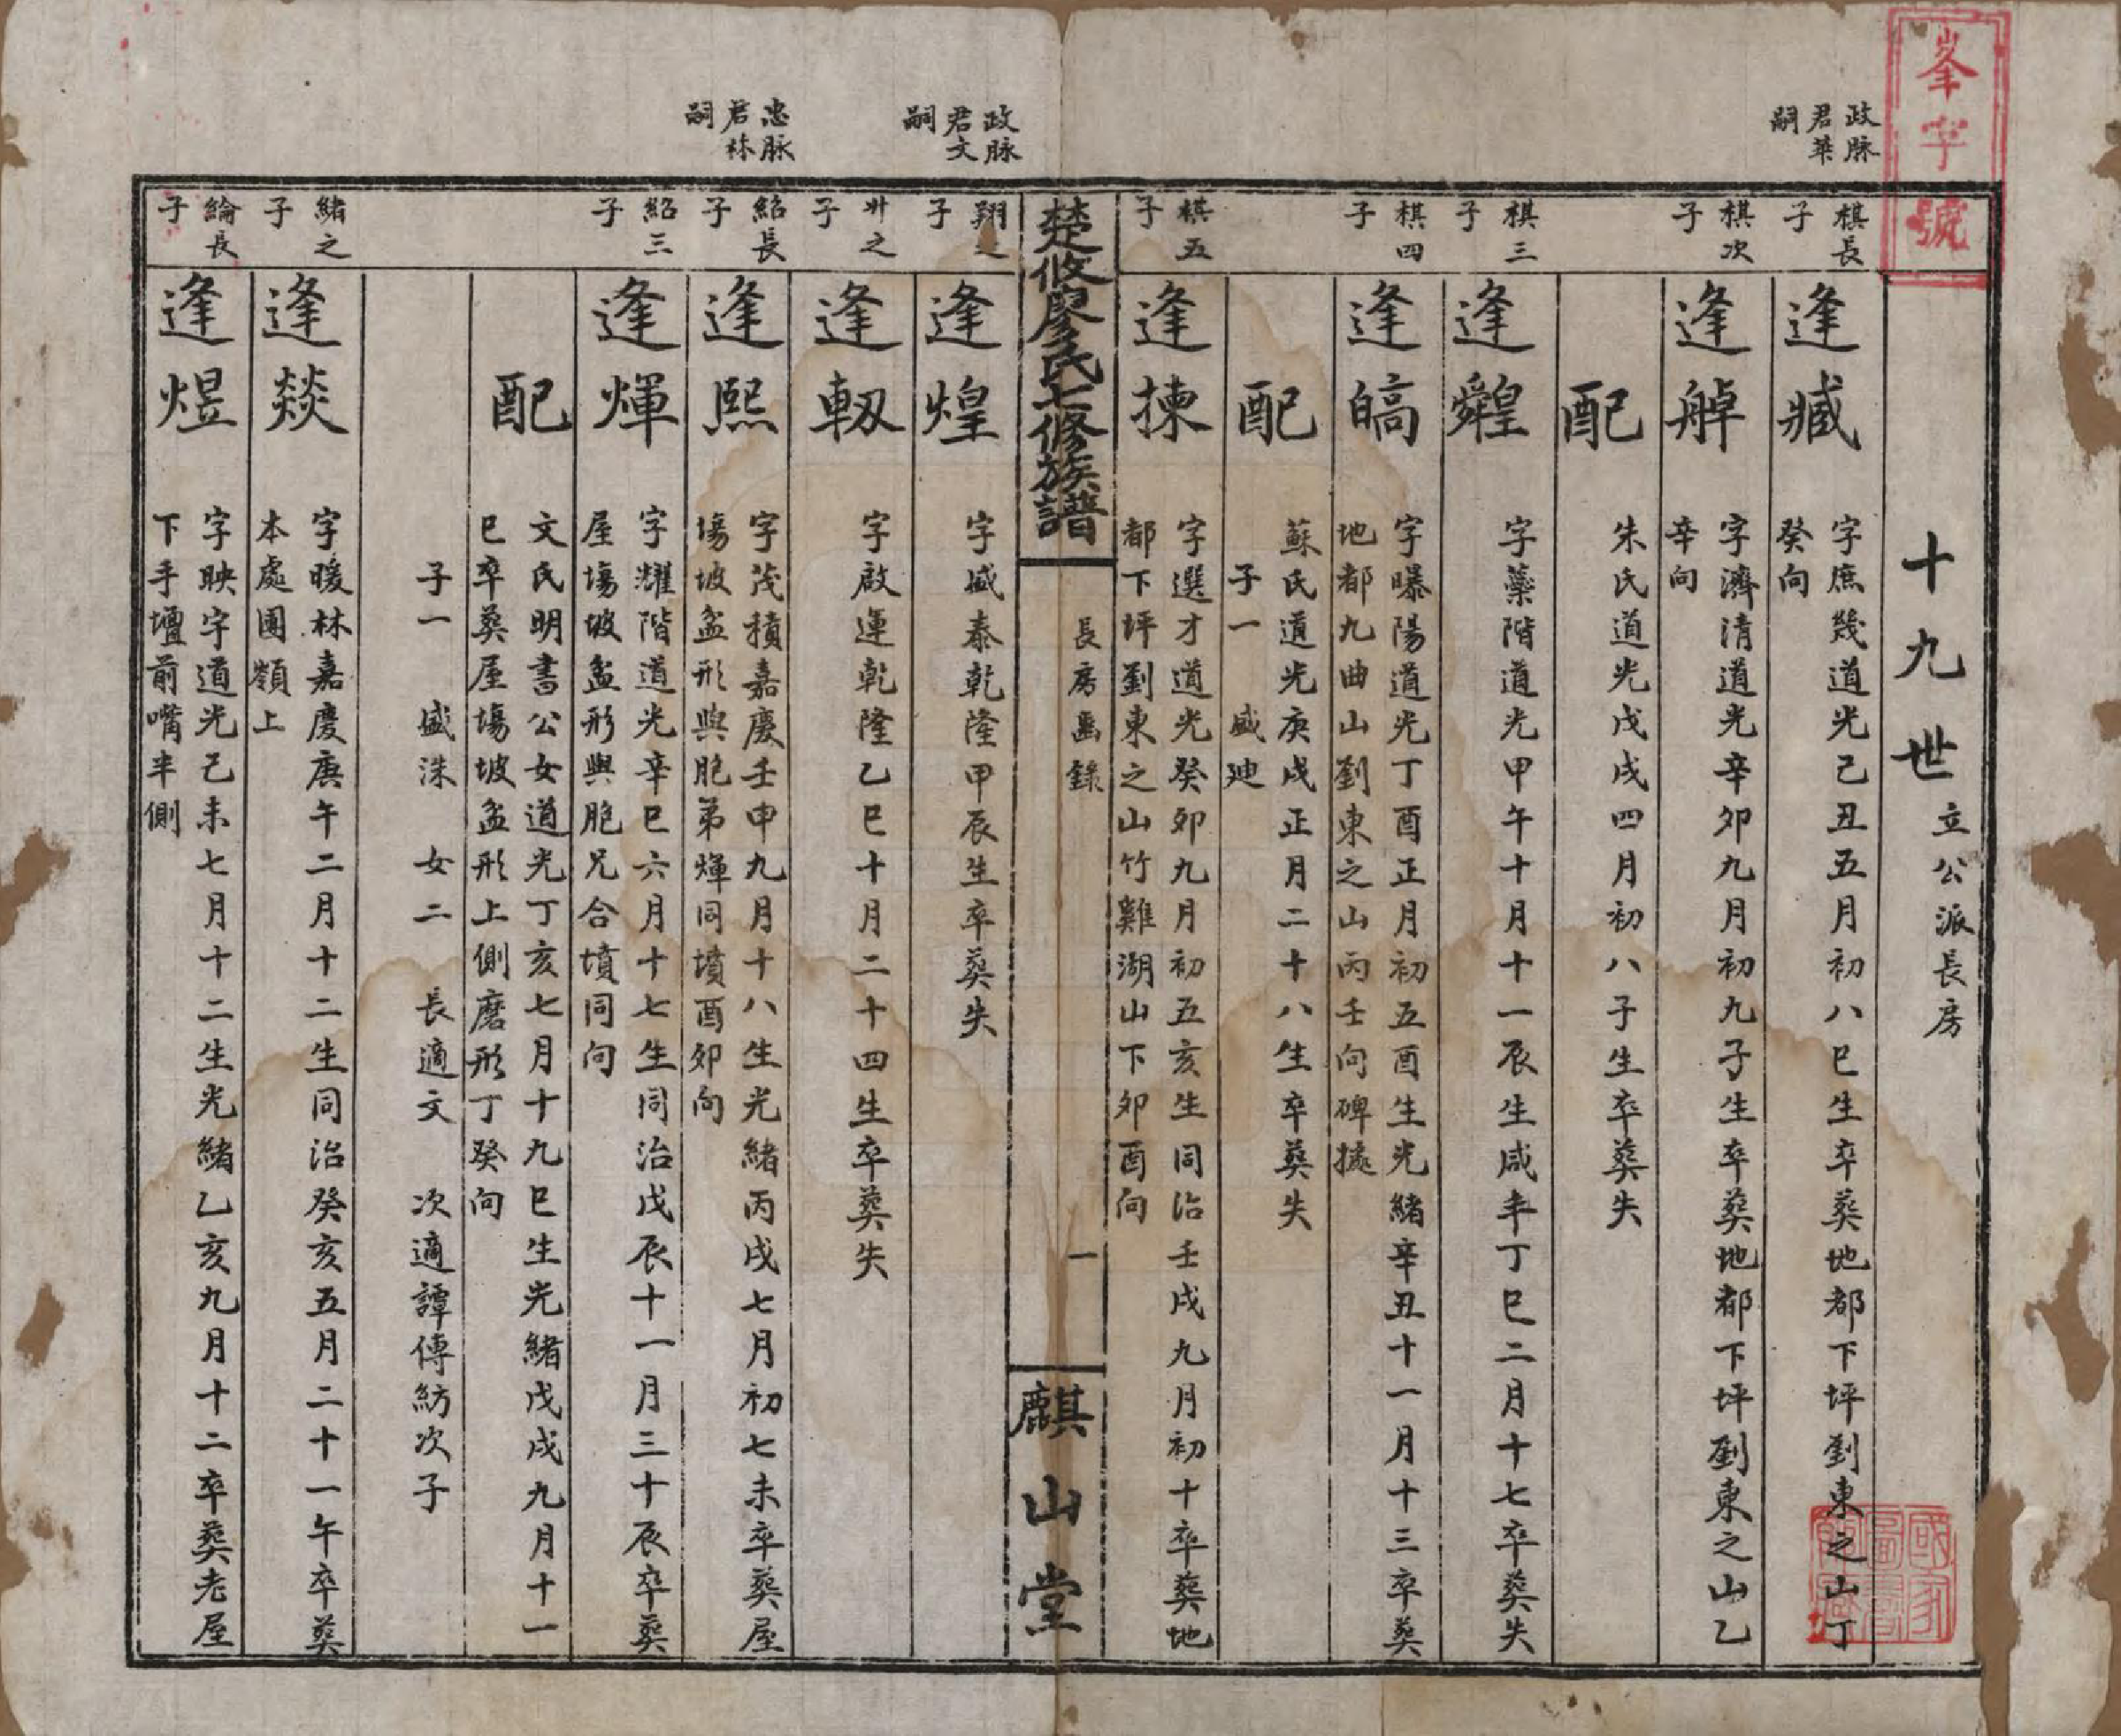 峯字號
十九世 立公派長房
政脉
君華
嗣
棋長
子
逢臧
字庶幾道光己丑五月初八巳生卒葬地都下坪劉東之山丁
癸向
棋次
子
逢
字濟清道光辛卯九月初九子生卒葬地都下坪劉東之山乙
辛向
配
朱氏道光戊戌四月初八子生卒葬失
棋三
子
逢
字藥階道光甲午十月十一辰生咸丰丁巳二月十七卒葬失
棋四
子
逢皜
字曝陽道光丁酉正月初五酉生光緒辛丑十一月十三卒葬
地都九曲山劉東之山丙壬向碑據
配
蘇氏道光庚戌正月二十八生卒葬失
子一 盛廸
棋五
子
逢揀
字選才道光癸卯九月初五亥生同治壬戌九月初十卒葬地
都下坪劉東之山竹雞湖山下卯酉向
楚攸廖氏七修族譜
長房齒錄
一
麒山堂
政脉
君文
嗣
翔之
子
逢煌
字盛泰乾隆甲辰生卒葬失
廾之
子
逢
字啟運乾隆乙巳十月二十四生卒葬失
忠脉
君林
嗣
紹長
子
逢熙
字茂積嘉慶壬申九月十八生光緒丙戌七月初七未卒葬屋
塲坡盆形與胞弟煇同墳酉卯向
紹三
子
逢煇
字耀階道光辛巳六月十七生同治戊辰十一月三十辰卒葬
屋塲坡盆形與胞兄合墳同向
配
文氏明書公女道光丁亥七月十九巳生光緒戊戌九月十一
巳卒葬屋塲坡盆形上側磨形丁癸向
子一 盛洙 女二 長適文 次適譚傳紡次子
緒之
子
逢燚
字暖林嘉慶庚午二月十二生同治癸亥五月二十一午卒葬
本處團嶺上
綸長
子
逢煜
字映宇道光己未七月十二生光緒乙亥九月十二卒葬老屋
下手壇前嘴半側